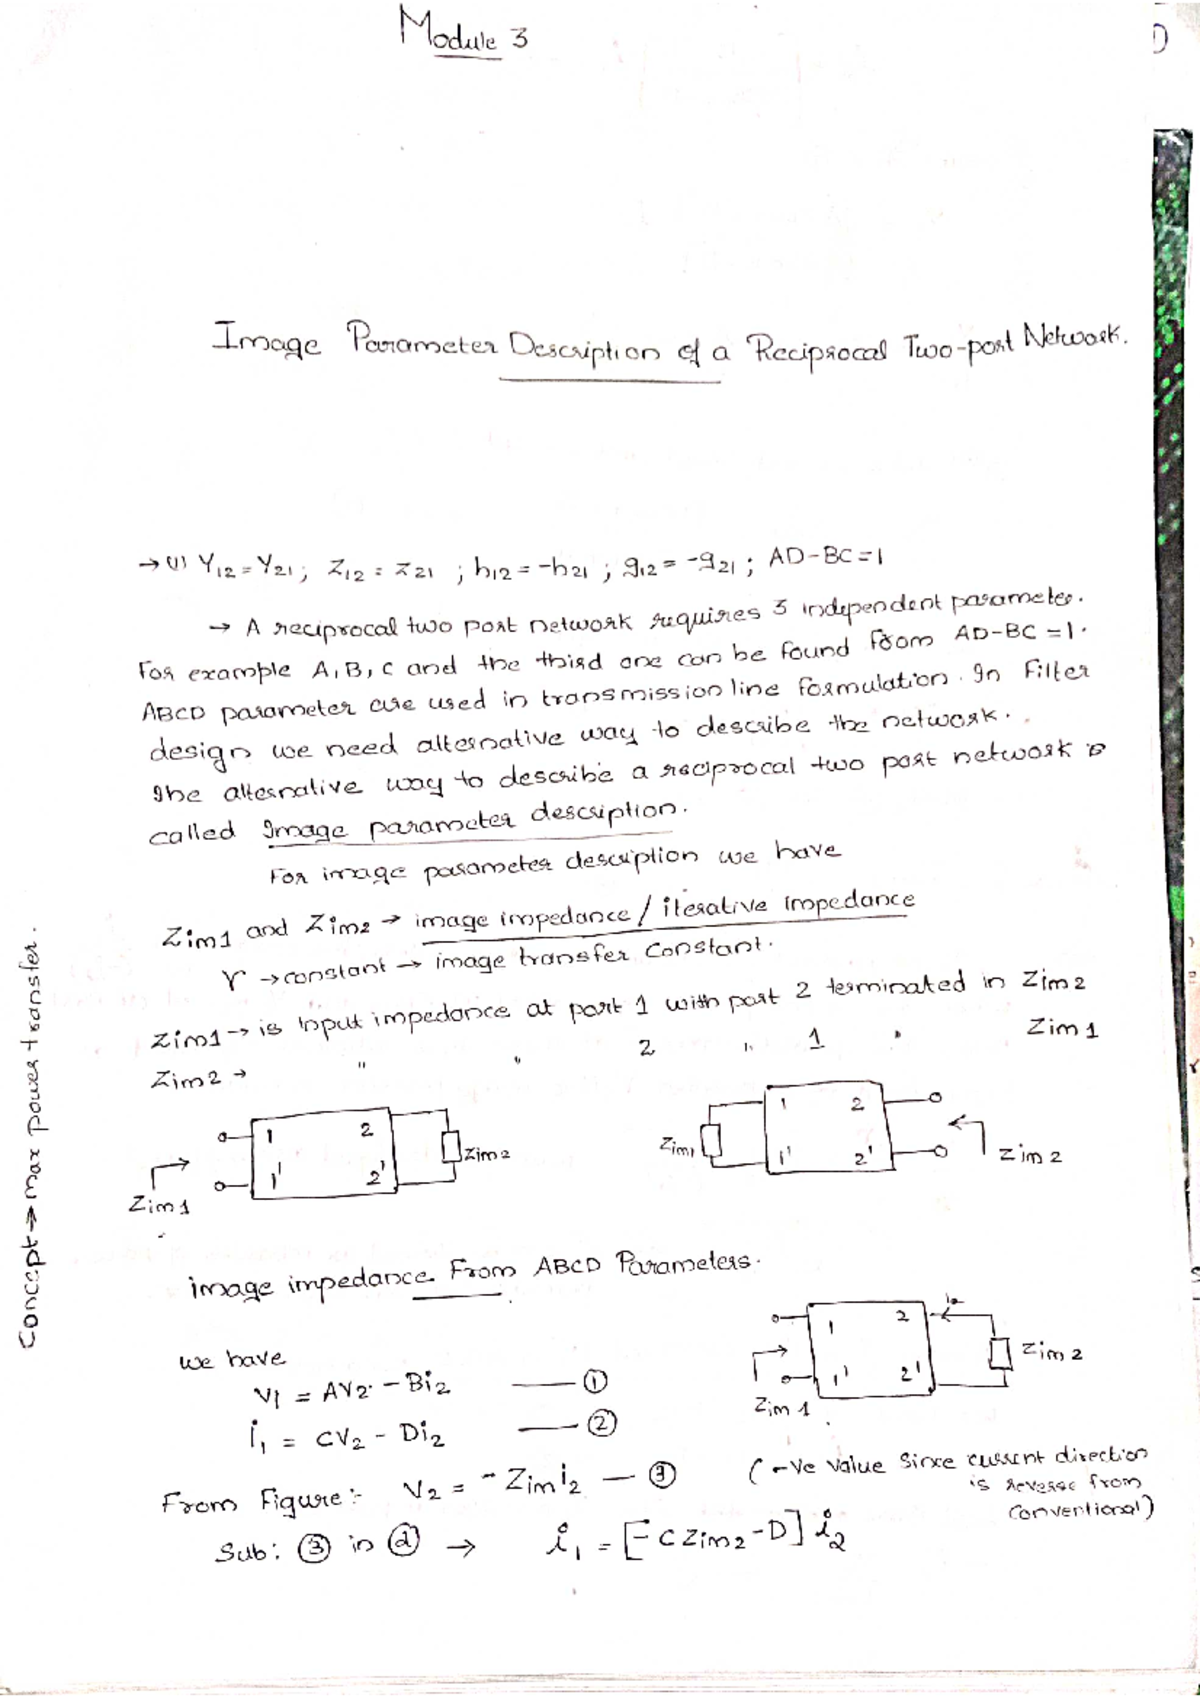 Module 3
1)
Image Parameter Description of a Reciprocal Two-port Network.
→ (1) Y12 = Y21 ; Z12 = Z21 ; h12 = -h21 ; g12 = -g21 ; AD-BC = 1
→ A reciprocal two port network requires 3 independent parameter.
For example A, B, C and the third one can be found from AD-BC = 1.
ABCD parameter are used in transmission line formulation. In Filter
design we need alternative way to describe the network.
The alternative way to describe a reciprocal two port network is
called Image parameter description.
For image parameter description we have
Zim1 and Zim2 → image impedance / iterative impedance
γ → constant → image transfer constant.
Zim1 → is input impedance at port 1 with port 2 terminated in Zim2
Zim2 → " " 2 " 1 " Zim1
Concept → max power transfer.
1 2 Zim2
1' 2'
Zim1
Zim1 1 2
1' 2' Zim2
image impedance From ABCD Parameters.
we have
V1 = AV2 - Bi2 —— ①
i1 = CV2 - Di2 —— ②
1 2 i2
1' 2' Zim2
Zim1
From Figure:- V2 = -Zim i2 — ③
(-ve value since current direction
is reverse from
conventional)
Sub: ③ in ② → i1 = [-CZim2 - D] i2